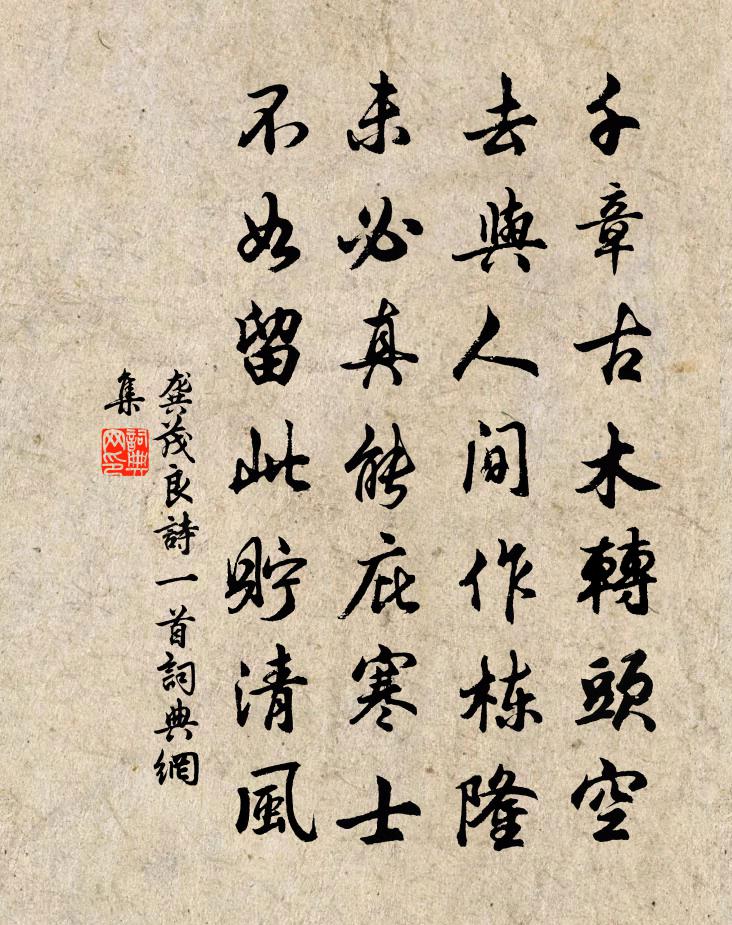 千章古木轉頭空
去與人間作棟隆
未必真能庇寒士
不如留此貯清風
龔茂良詩一首詞典網
集
詞典
网印